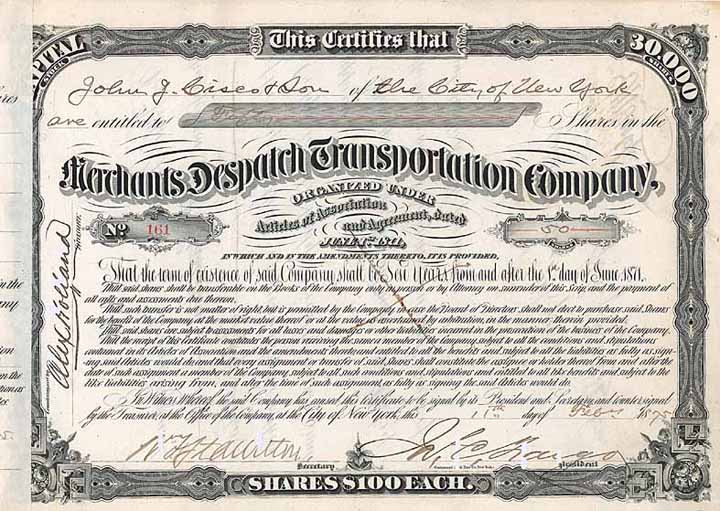 This Certifies that
CAPITAL STOCK
30,000 SHARES
John J. Cisco & Son of the City of New York
are entitled to Fifty Shares in the
Merchants Despatch Transportation Company,
ORGANIZED UNDER
Articles of Association
and Agreement, Dated
JUNE 1ST 1871,
No 161
50
IN WHICH AND IN THE AMENDMENTS THERETO, IT IS PROVIDED,
That the term of existence of said Company shall be Ten Years from and after the 1st day of June 1871.
That said shares shall be transferable on the Books of the Company only in person or by Attorney on surrender of this Scrip, and the payment of
all calls and assessments due thereon.
That such transfer is not matter of right, but is permitted by the Company, in case the Board of Directors shall not elect to purchase said Shares
for the benefit of the Company at the market value thereof or at the value as ascertained by arbitration, in the manner therein provided.
That said shares are subject to assessments for all losses and damages or other liabilities incurred in the prosecution of the business of the Company.
That the receipt of this Certificate constitutes the person receiving the same a member of the Company, subject to all the conditions and stipulations
contained in its Articles of Association and the amendments thereto and entitled to all the benefits and subject to all the liabilities as fully as sign-
ing said Articles would do, and that every assignment or transfer of said Shares shall constitute the assignee or holder thereof from and after the
date of such assignment a member of the Company, subject to all such conditions and stipulations and entitled to all like benefits and subject to the
like liabilities arising from, and after the time of such assignment, as fully as signing the said Articles would do.
In Witness Whereof, the said Company has caused this certificate to be signed by its President and Secretary and countersigned
by the Treasurer, at the Office of the Company, at the City of New York, this 11th day of Feby 1875
Alex Holland
Treasurer.
Secretary
Jas. C. Fargo
President
SHARES $100 EACH.